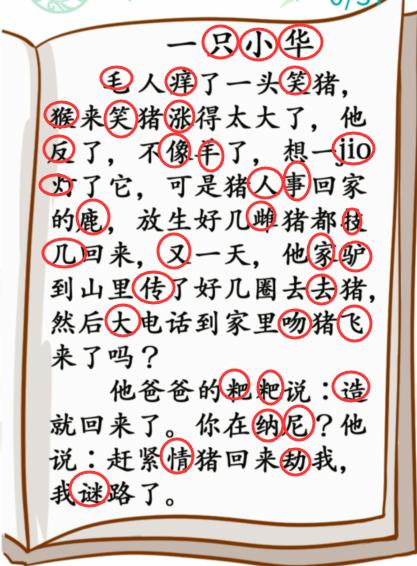 一只小华
毛人痒了一头笑猪，
猴来笑猪涨得太大了，他
反了，不像手了，想一jio
灯了它，可是猪人事回家
的鹿，放生好几雌猪都技
几回来，又一天，他家驴
到山里传了好几圈去去猪，
然后大电话到家里吻猪飞
来了吗？
他爸爸的粑粑说：造
就回来了。你在纳尼？他
说：赶紧情猪回来劫我，
我谜路了。